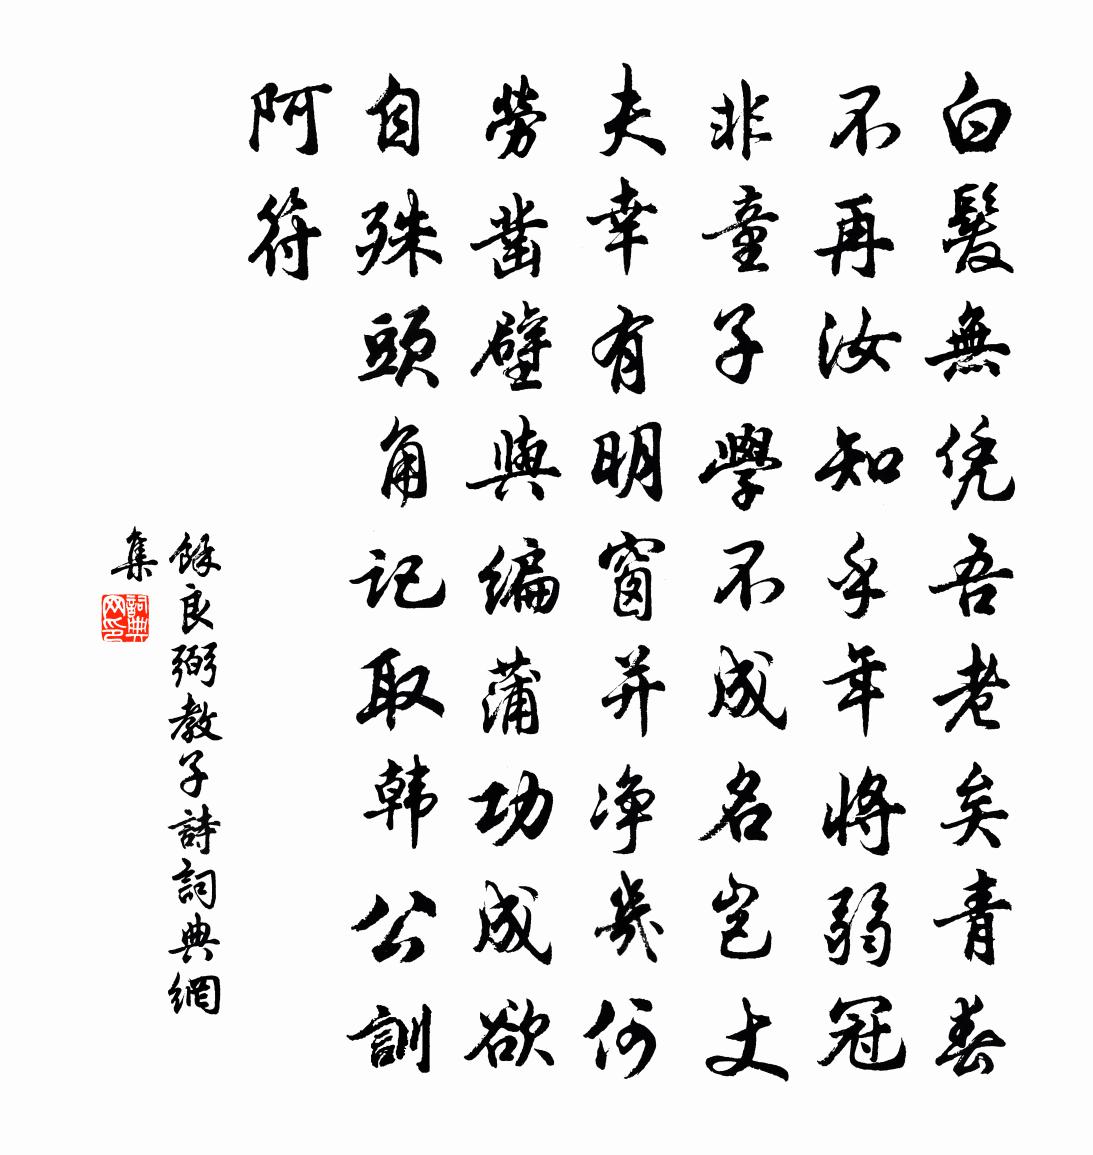 白髮無凭吾老矣青春
不再汝知乎年將弱冠
非童子學不成名豈丈
夫幸有明窗并净幾何
勞凿壁與编蒲功成欲
自殊頭角记取韩公訓
阿符
餘良弼教子詩詞典網
集
詞典网印